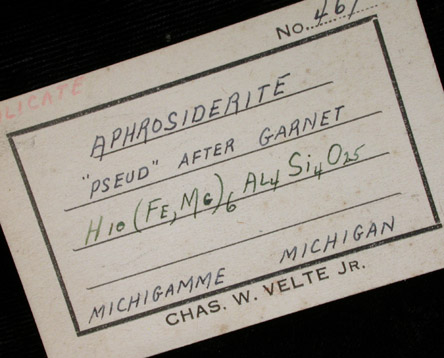 NO. 461
LICATE
APHROSIDERITE
"PSEUD" AFTER GARNET
H10 (FE, MG)6 AL4 Si4 O25
MICHIGAMME MICHIGAN
CHAS. W. VELTE JR.